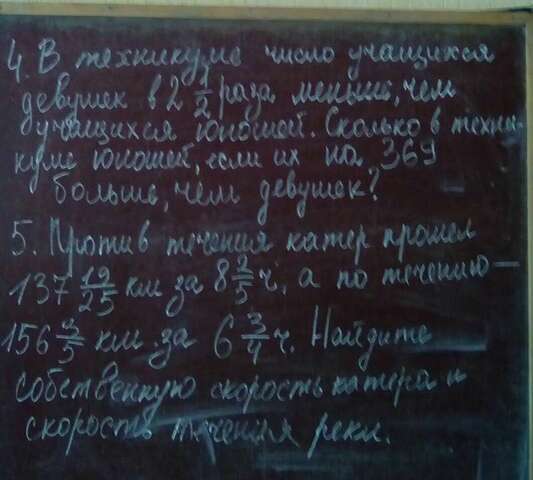 4. В техникуме число учащихся
девушек в 2 1/2 раза меньше, чем
учащихся юношей. Сколько в техни-
куме юношей, если их на 369
больше, чем девушек?
5. Против течения катер прошел
137 19/25 км за 8 2/5 ч, а по течению —
156 3/5 км за 6 3/4 ч. Найдите
собственную скорость катера и
скорость течения реки.